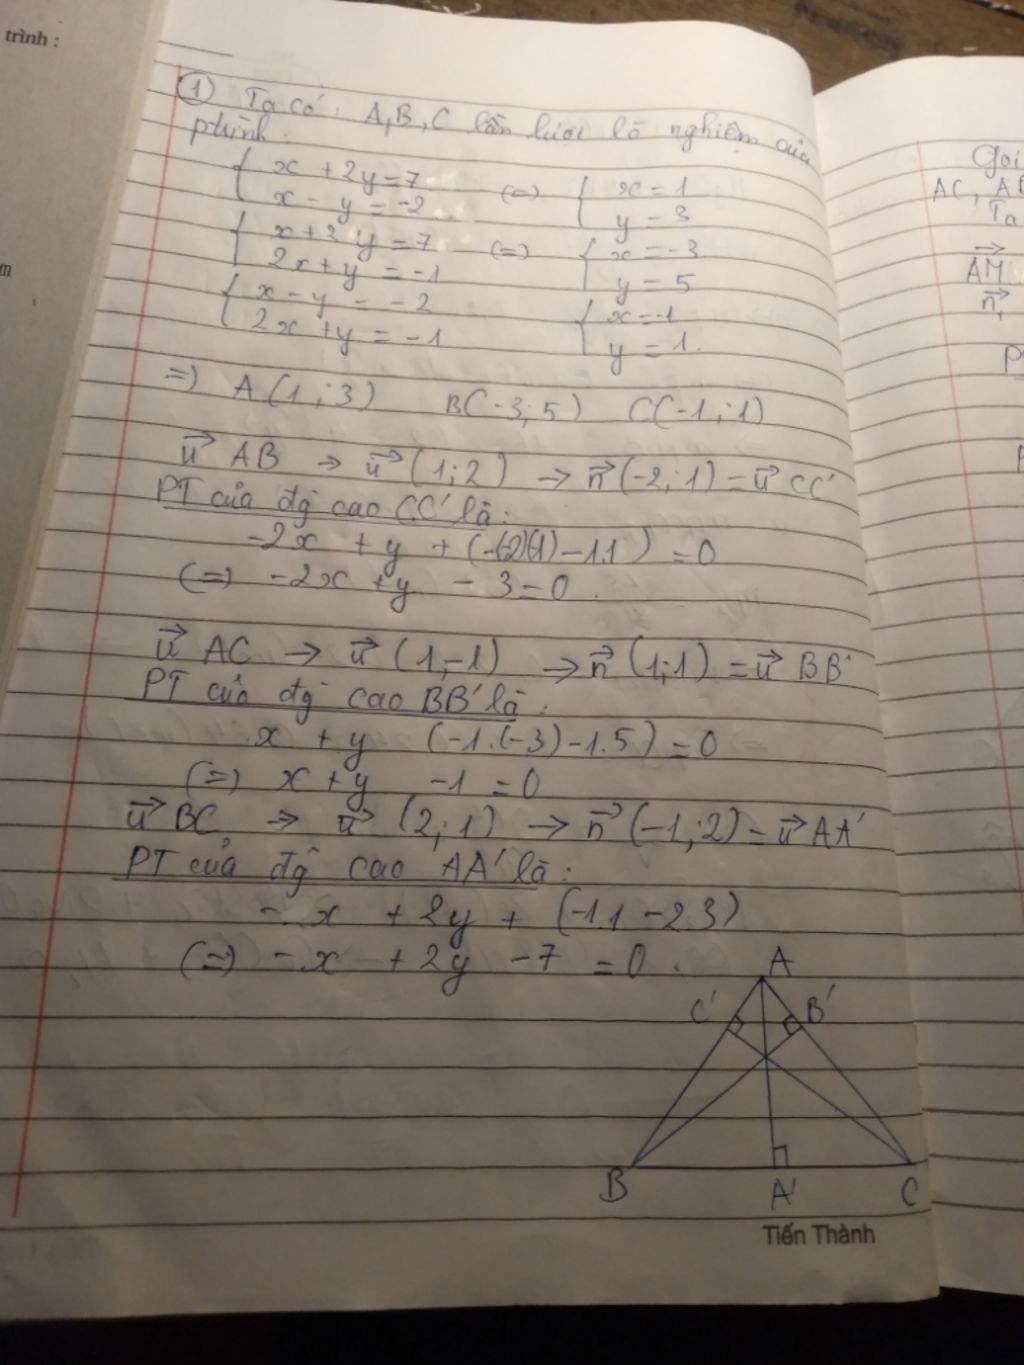 trình :
m
① Ta có: A, B, C lần lượt là nghiệm của
phình:
{ x + 2y = 7
x - y = -2
(=) { x = 1
y = 3
{ x + 2y = 7
2x + y = -1
(=) { x = -3
y = 5
{ x - y = -2
2x + y = -1
{ x = -1
y = 1.
=) A(1;3) B(-3;5) C(-1;1)
u⃗ AB → u⃗ (1;2) → n⃗ (-2;1) = u⃗ CC'
PT của đg cao CC' là:
-2x + y + (-(-2)(-1) - 1.1) = 0
(=) -2x + y - 3 = 0.
u⃗ AC → u⃗ (1;-1) → n⃗ (1;1) = u⃗ BB'
PT của đg cao BB' là:
x + y (-1.(-3) - 1.5) = 0
(=) x + y - 1 = 0
u⃗ BC → u⃗ (2;1) → n⃗ (-1;2) = u⃗ AA'
PT của đg cao AA' là:
- x + 2y + (-1.1 - 2.3)
(=) - x + 2y - 7 = 0.
A
C' B'
B A' C
Tiến Thành
Gọi
AC, AB
Ta
AM⃗
n⃗₁
P